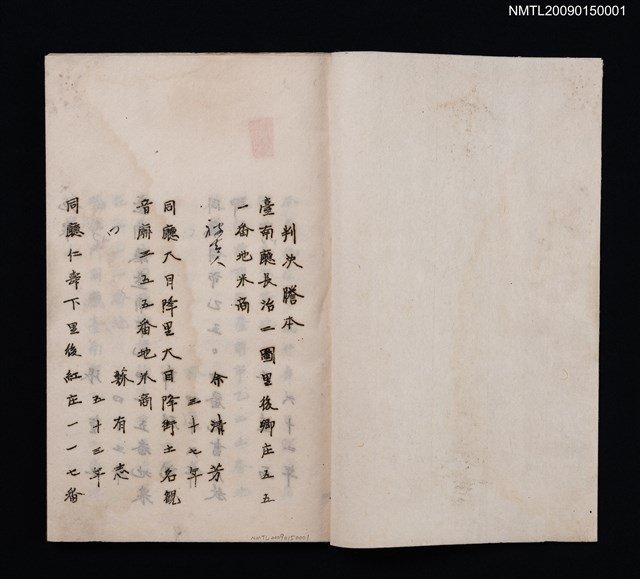 NMTL20090150001
判決謄本
臺南廳長治二圖里後鄉庄五五
一番地米商
被告人 余清芳
三十七年
同廳大目降里大目降街土名觀
音廟二五五番地米商
〃 蘇有志
五十三年
同廳仁壽下里後紅庄一一七番
NMTL20090150001